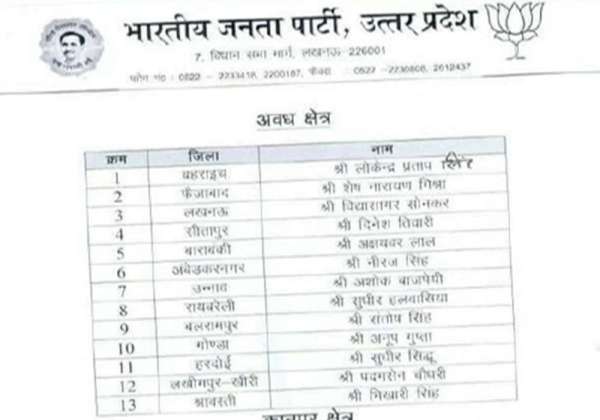 भारतीय जनता पार्टी, उत्तर प्रदेश
7, विधान सभा मार्ग, लखनऊ-226001
फोन नं० : 0522 - 2233418, 2200187, फैक्स : 0522 -2236808, 2612437
अवध क्षेत्र
क्रम जिला नाम
1 बहराइच श्री लोकेन्द्र प्रताप सिंह
2 फैजाबाद श्री शेष नारायण मिश्रा
3 लखनऊ श्री विद्यासागर सोनकर
4 सीतापुर श्री दिनेश तिवारी
5 बाराबंकी श्री अक्षयवर लाल
6 अंबेडकरनगर श्री नीरज सिंह
7 उन्नाव श्री अशोक बाजपेयी
8 रायबरेली श्री सुधीर हलवासिया
9 बलरामपुर श्री संतोष सिंह
10 गोण्डा श्री अनूप गुप्ता
11 हरदोई श्री सुधीर सिद्धू
12 लखीमपुर-खीरी श्री पदमसेन चौधरी
13 श्रावस्ती श्री भिखारी सिंह
कानपुर क्षेत्र